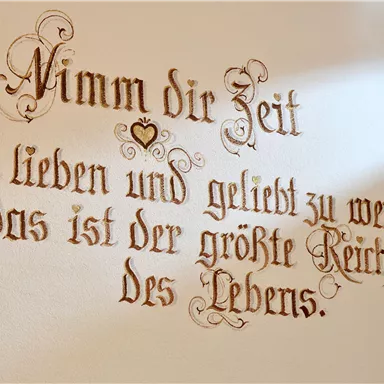 Nimm dir Zeit
lieben und geliebt zu we
Das ist der größte Reich
des Lebens.